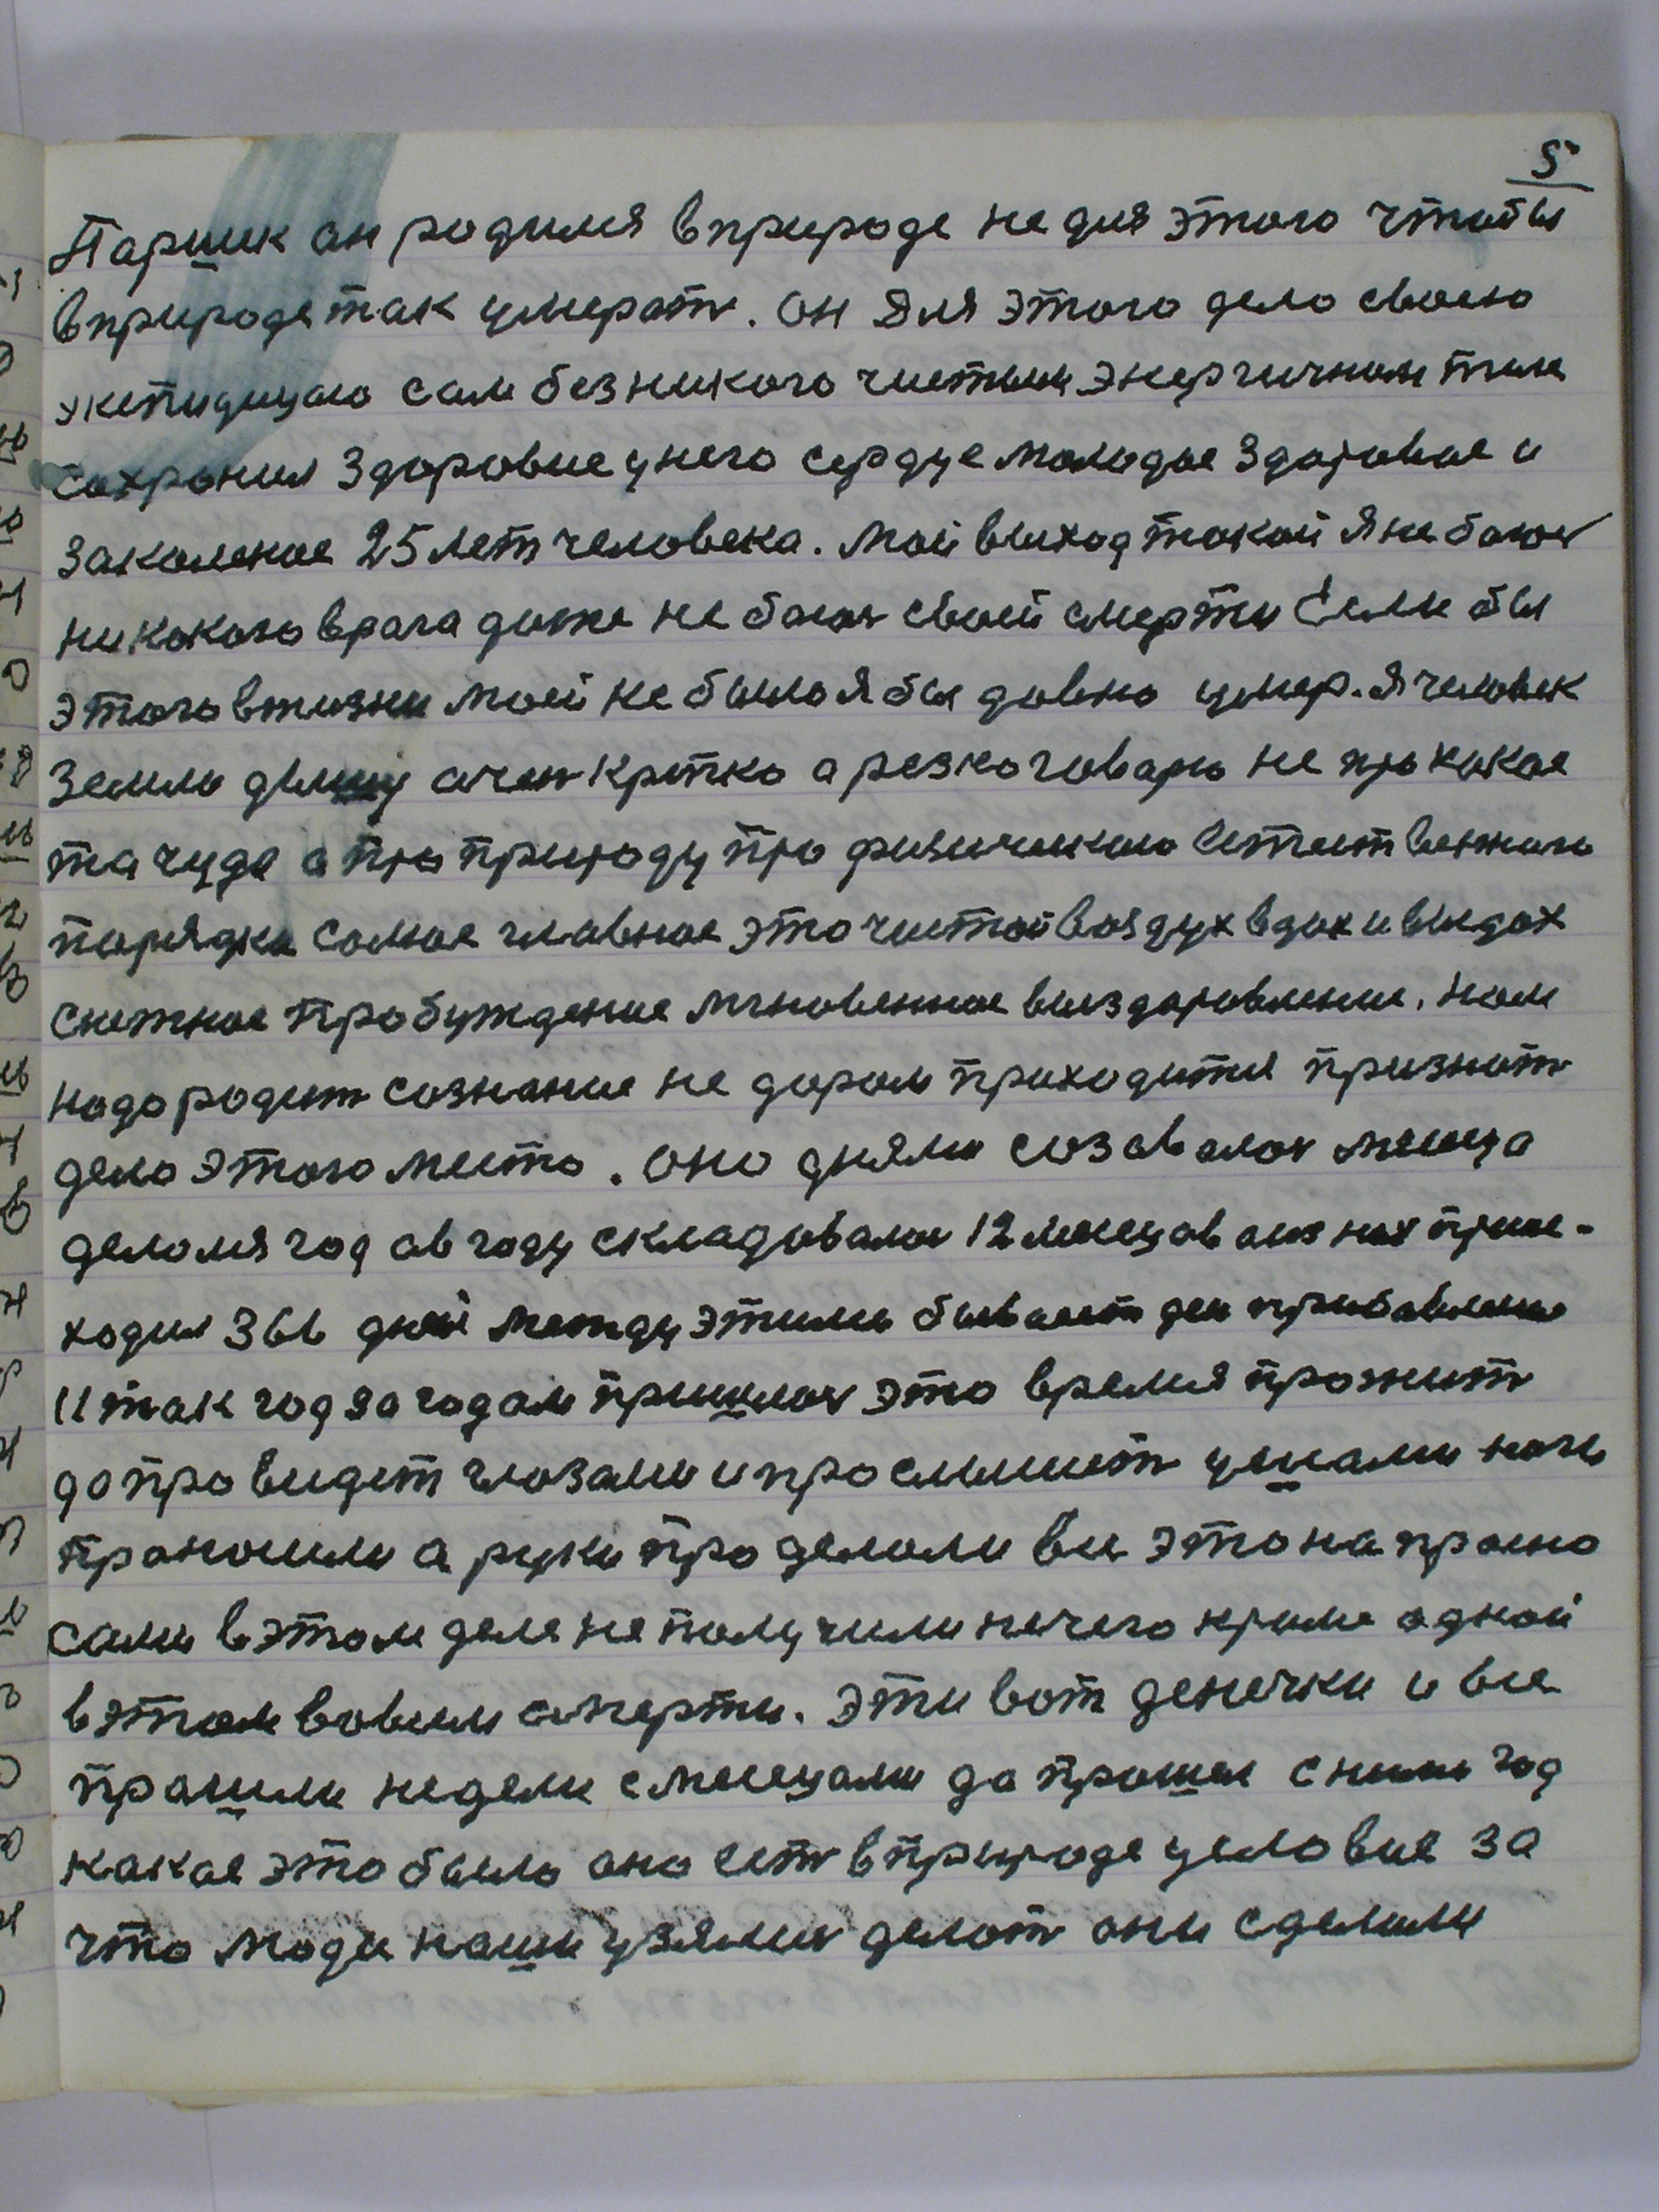 5
Паршик он родился в природе не для этого чтобы
в природе так умерать. Он для этого дело своею
экспидицаю сам без никого чистым энергичном тили
сохронил здоровие у него сердце молодое здоровое и
закаленое 25 лет человека. Мой выход такой я не боюсь
никокого врага даже не боюсь своей смерти Если бы
этого в жизни моей не было я бы довно умер. Я человек
Земли дышу очен крепко а резко говарю не про какое
та чудо а про природу про физическаю естественного
порядка самое главное это чистой воздух вдох и выдох
снежное пробуждение мгновенное выздоровление. Нам
надо родит сознание не даром приходится признать
дело этого место. Оно днями создавалось месеца
делолся год а в году складовалось 12 месецов а из них прие-
ходил 366 дней между этими бывает ден прибавление
И так год за годом пришлось это время прожить
да провидет глозами и прослышеть ушами ноги
проношили а руки проделоли все это напрасно
сами в этом деле не получили нечего кроме одной
в этом вовсем смерти. Эти вот денечки и все
прошли недели с месецами да прошел с ними год
какое это было оно есть в природе условие за
что люди наши узялись делоть они сделали